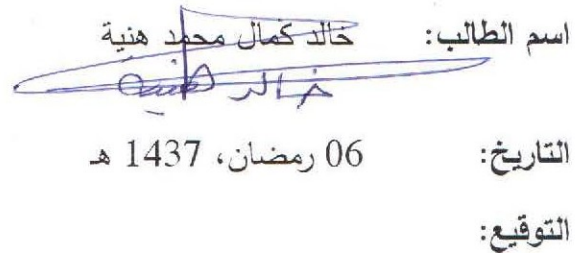 اسم الطالب: خالد كمال محمد هنية
خالد هنية
التاريخ: 06 رمضان، 1437 هـ
التوقيع: